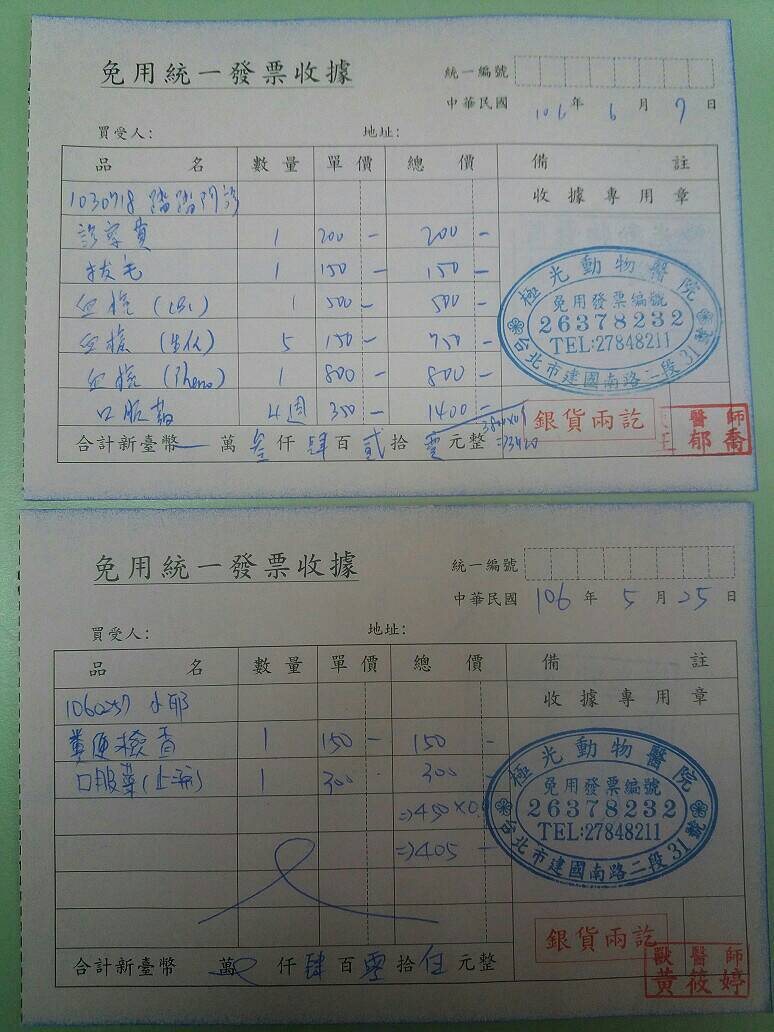 免用統一發票收據
統一編號
中華民國 106 年 6 月 7 日
買受人： 地址：
品 名 數量 單價 總價 備 註
1030718 踏踏門診 收據專用章
診察費 1 200 - 200 -
拔毛 1 150 - 150 -
血檢 (CBC) 1 500 - 500 -
血檢 (生化) 5 150 - 750 -
血檢 (Pheno) 1 800 - 800 -
口服藥 4週 350 - 1400 -
3800×0.9
=3420
合計新臺幣 萬 叁 仟 肆 百 貳 拾 零 元整
極光動物醫院
免用發票編號
26378232
TEL:27848211
台北市建國南路二段31號
銀貨兩訖
醫師
郁喬
免用統一發票收據
統一編號
中華民國 106 年 5 月 25 日
買受人： 地址：
品 名 數量 單價 總價 備 註
1060257 水耶 收據專用章
糞便檢查 1 150 - 150 -
口服藥(止瀉) 1 300 300 -
⇒450×0.
⇒405 -
合計新臺幣 萬 仟 肆 百 零 拾 伍 元整
極光動物醫院
免用發票編號
26378232
TEL:27848211
台北市建國南路二段31號
銀貨兩訖
獸醫師
黃筱婷